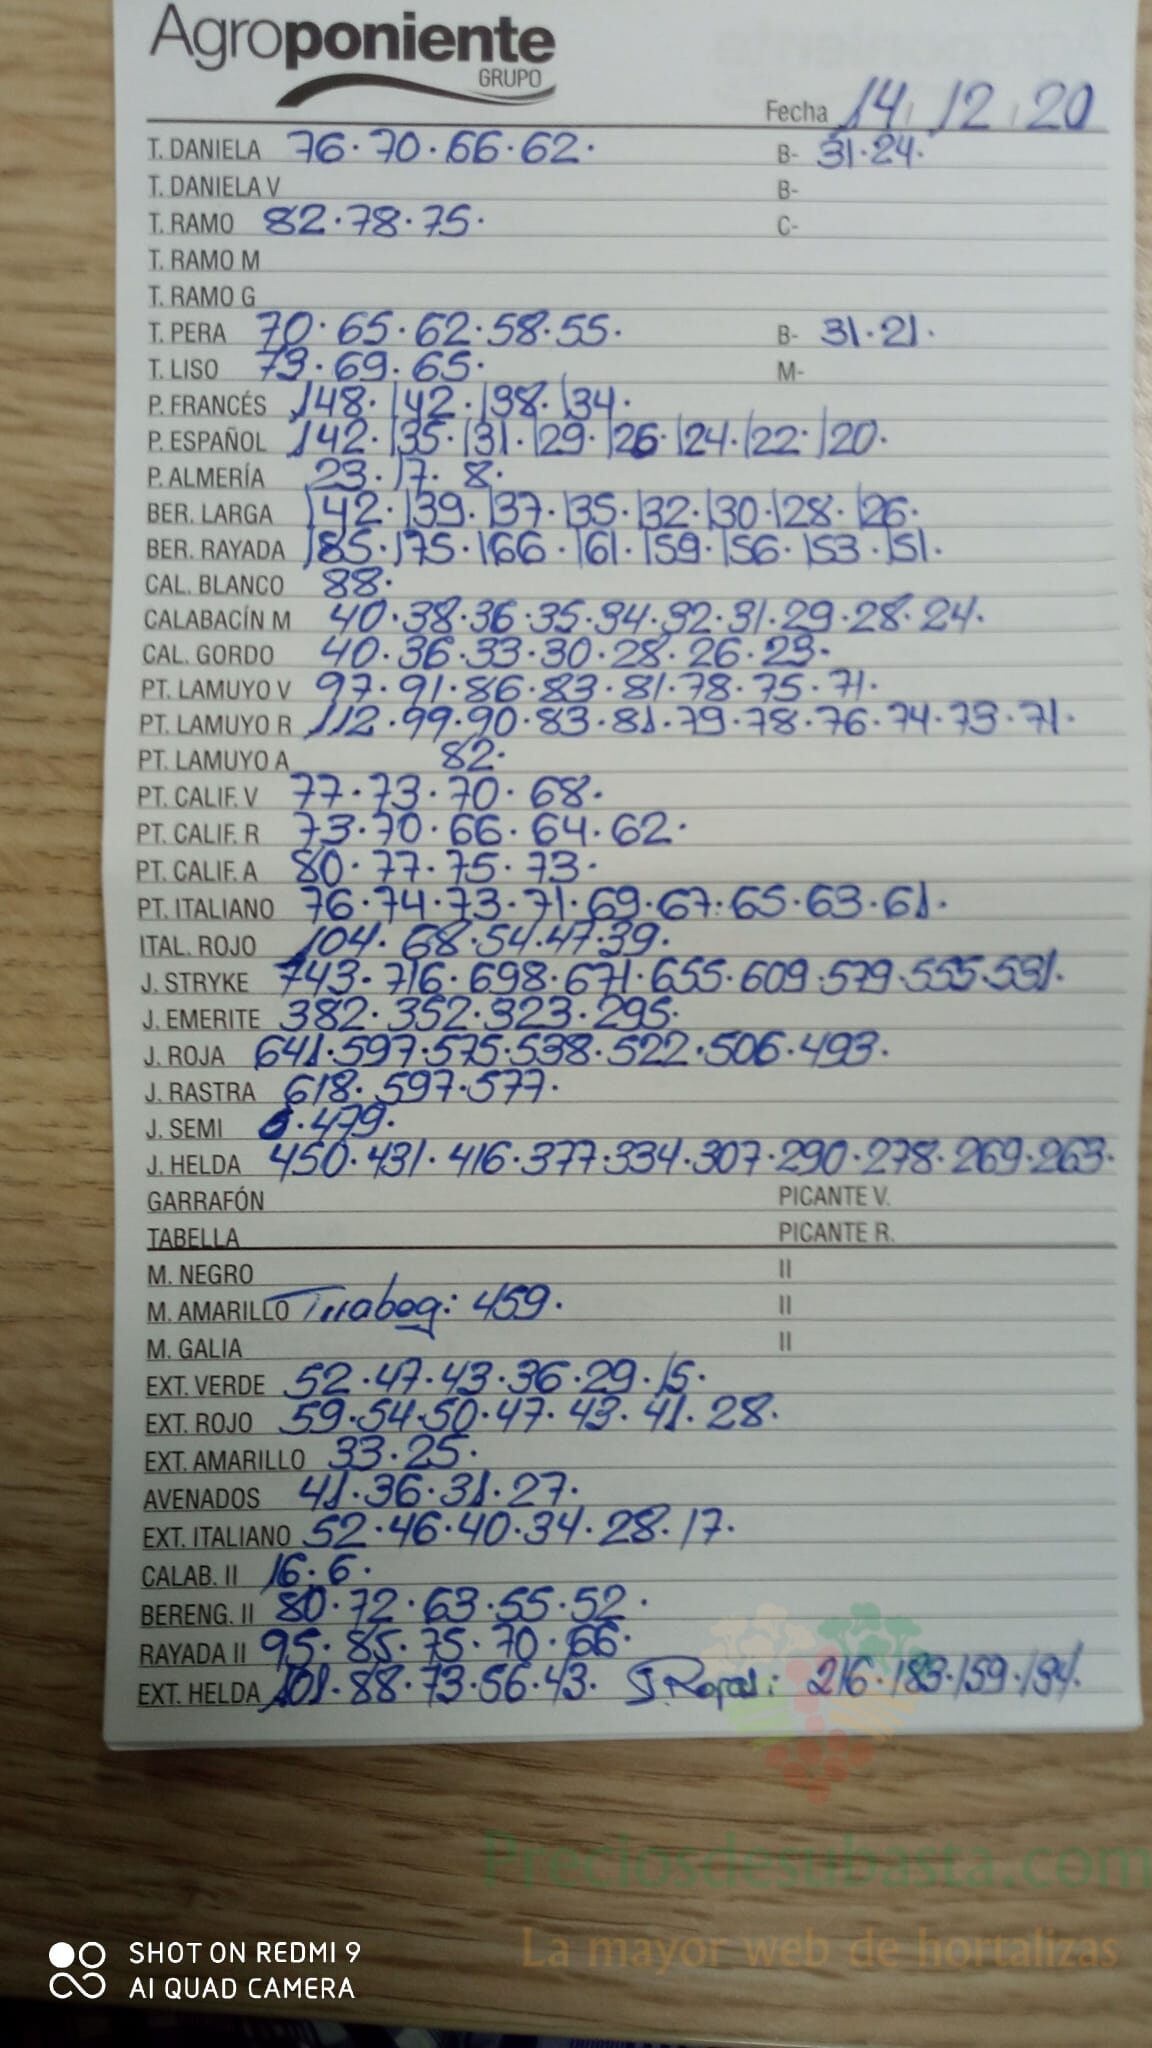 Agroponiente
GRUPO
Fecha 14 / 12 / 20
T. DANIELA 76·70·66·62· B- 31·24·
T. DANIELA V B-
T. RAMO 82·78·75· C-
T. RAMO M
T. RAMO G
T. PERA 70·65·62·58·55· B- 31·21·
T. LISO 73·69·65· M-
P. FRANCÉS 148·142·138·134·
P. ESPAÑOL 142·135·131·129·126·124·122·120·
P. ALMERÍA 23·17·8·
BER. LARGA 142·139·137·135·132·130·128·126·
BER. RAYADA 185·175·166·161·159·156·153·151·
CAL. BLANCO 88·
CALABACÍN M 40·38·36·35·34·32·31·29·28·24·
CAL. GORDO 40·36·33·30·28·26·23·
PT. LAMUYO V 97·91·86·83·81·78·75·71·
PT. LAMUYO R 112·99·90·83·81·79·78·76·74·73·71·
PT. LAMUYO A 82·
PT. CALIF. V 77·73·70·68·
PT. CALIF. R 73·70·66·64·62·
PT. CALIF. A 80·77·75·73·
PT. ITALIANO 76·74·73·71·69·67·65·63·61·
ITAL. ROJO 104·68·54·47·39·
J. STRYKE 743·716·698·671·655·609·579·555·531·
J. EMERITE 382·352·323·295·
J. ROJA 641·597·575·538·522·506·493·
J. RASTRA 618·597·577·
J. SEMI ·479·
J. HELDA 450·431·416·377·334·307·290·278·269·263·
GARRAFÓN PICANTE V.
TABELLA PICANTE R.
M. NEGRO II
M. AMARILLO : 459· II
M. GALIA II
EXT. VERDE 52·47·43·36·29·15·
EXT. ROJO 59·54·50·47·43·41·28·
EXT. AMARILLO 33·25·
AVENADOS 41·36·31·27·
EXT. ITALIANO 52·46·40·34·28·17·
CALAB. II 16·6·
BERENG. II 80·72·63·55·52·
RAYADA II 95·85·75·70·66·
EXT. HELDA 101·88·73·56·43· : 216·183·159·134·
Preciosdesubasta.com
La mayor web de hortalizas
SHOT ON REDMI 9
AI QUAD CAMERA